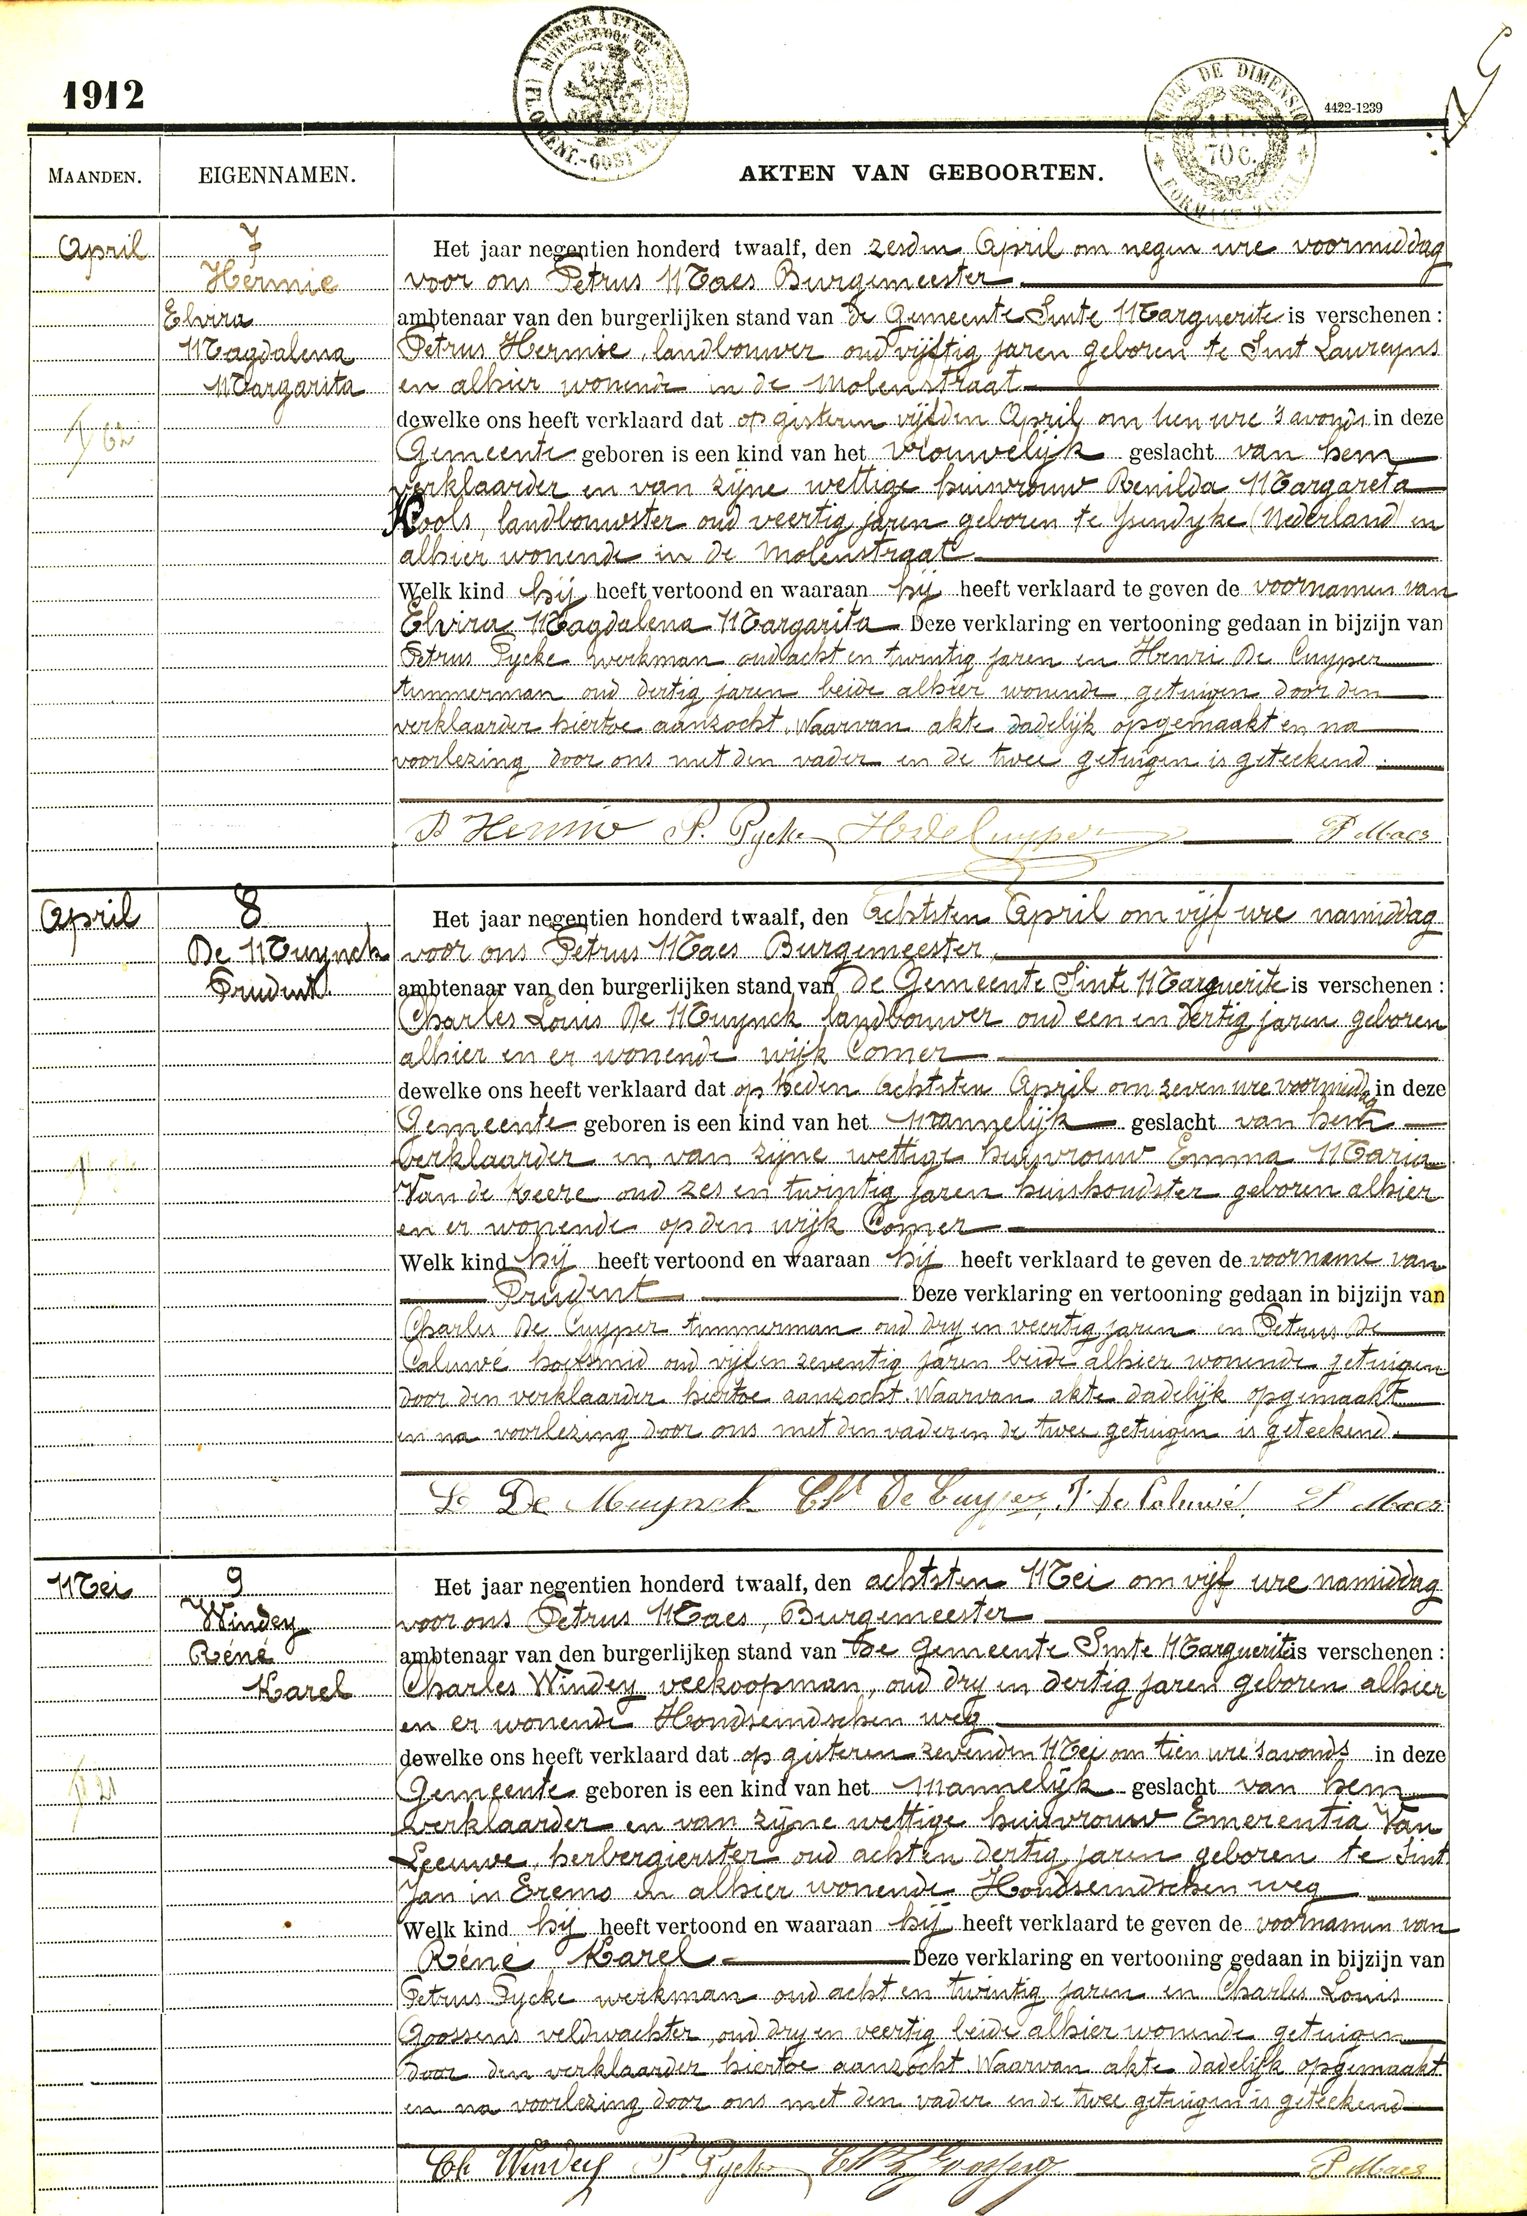 1912
4422-1239
TIMBRE DE DIMENSION
1 FR.
70 C.
MAANDEN.
EIGENNAMEN.
AKTEN VAN GEBOORTEN.
April
7
Hermie
Elvira
Magdalena
Margarita
Het jaar negentien honderd twaalf, den zesden April om negen ure voormiddag
voor ons Petrus Maes Burgemeester
ambtenaar van den burgerlijken stand van de Gemeente Sinte Marguerite is verschenen :
Petrus Hermie, landbouwer oud vijftig jaren geboren te Sint Laureyns
en alhier wonende in de Molenstraat
dewelke ons heeft verklaard dat op gisteren vijfden April om tien ure 's avonds in deze
Gemeente geboren is een kind van het vrouwelijk geslacht van hem
verklaarder en van zijne wettige huisvrouw Renilda Margareta
Kools, landbouwster oud veertig jaren geboren te Ysendyke (Nederland) en
alhier wonende in de Molenstraat
Welk kind hij heeft vertoond en waaraan hij heeft verklaard te geven de voornamen van
Elvira Magdalena Margarita Deze verklaring en vertooning gedaan in bijzijn van
Petrus Pycke werkman oud acht en twintig jaren en Henri De Cuyper
timmerman oud dertig jaren beide alhier wonende getuigen door den
verklaarder hiertoe aanzocht. Waarvan akte dadelijk opgemaakt en na
voorlezing door ons met den vader en de twee getuigen is geteekend.
P Hermie P. Pycke H de Cuyper P Maes
April
8
De Muynck
Prudent.
Het jaar negentien honderd twaalf, den Achtsten April om vijf ure namiddag
voor ons Petrus Maes Burgemeester,
ambtenaar van den burgerlijken stand van De Gemeente Sinte Marguerite is verschenen :
Charles Louis De Muynck landbouwer oud een en dertig jaren geboren
alhier en er wonende wijk Comer
dewelke ons heeft verklaard dat op heden Achtsten April om zeven ure voormiddag in deze
Gemeente geboren is een kind van het mannelijk geslacht van hem
verklaarder en van zijne wettige huisvrouw Emma Maria
Van de Keere oud zes en twintig jaren huishoudster geboren alhier
en er wonende op den wijk Comer
Welk kind hij heeft vertoond en waaraan hij heeft verklaard te geven de voorname van
Prudent Deze verklaring en vertooning gedaan in bijzijn van
Charles De Cuyper timmerman oud dry en veertig jaren en Petrus De
Caluwé hoefsmid oud vijf en zeventig jaren beide alhier wonende getuigen
door den verklaarder hiertoe aanzocht. Waarvan akte dadelijk opgemaakt
en na voorlezing door ons met den vader en de twee getuigen is geteekend.
De Muynck Ch De Cuyper, De Caluwé P Maes
Mei
9
Windey
Réné
Karel
Het jaar negentien honderd twaalf, den achtsten Mei om vijf ure namiddag
voor ons Petrus Maes, Burgemeester
ambtenaar van den burgerlijken stand van De Gemeente Sinte Marguerite is verschenen :
Charles Windey veekoopman, oud dry en dertig jaren geboren alhier
en er wonende Hondseindschen weg
dewelke ons heeft verklaard dat op gisteren zevenden Mei om tien ure 's avonds in deze
Gemeente geboren is een kind van het mannelijk geslacht van hem
verklaarder en van zijne wettige huisvrouw Emerentia Van
Leeuwe, herbergierster oud acht en dertig jaren geboren te Sint
Jan in Eremo en alhier wonende Hondseindschen weg
Welk kind hij heeft vertoond en waaraan hij heeft verklaard te geven de voornamen van
Réné Karel Deze verklaring en vertooning gedaan in bijzijn van
Petrus Pycke werkman oud acht en twintig jaren en Charles Louis
Goossens veldwachter, oud dry en veertig beide alhier wonende getuigen
door den verklaarder hiertoe aanzocht. Waarvan akte dadelijk opgemaakt
en na voorlezing door ons met den vader en de twee getuigen is geteekend
Ch Windey P. Pycke Goossens P Maes